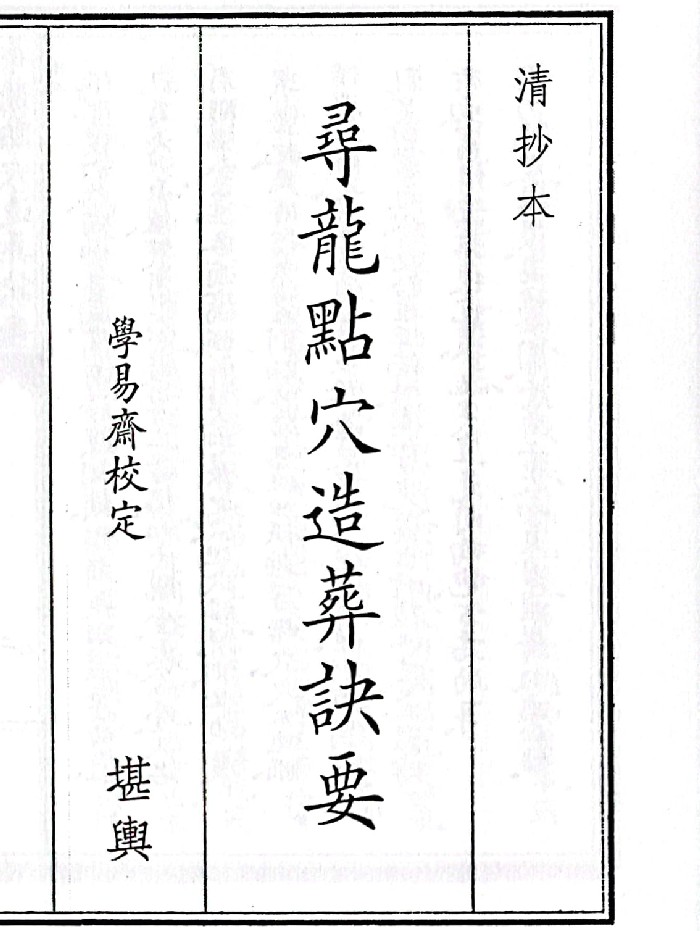 清抄本
尋龍點穴造葬訣要
學易齋校定
堪輿